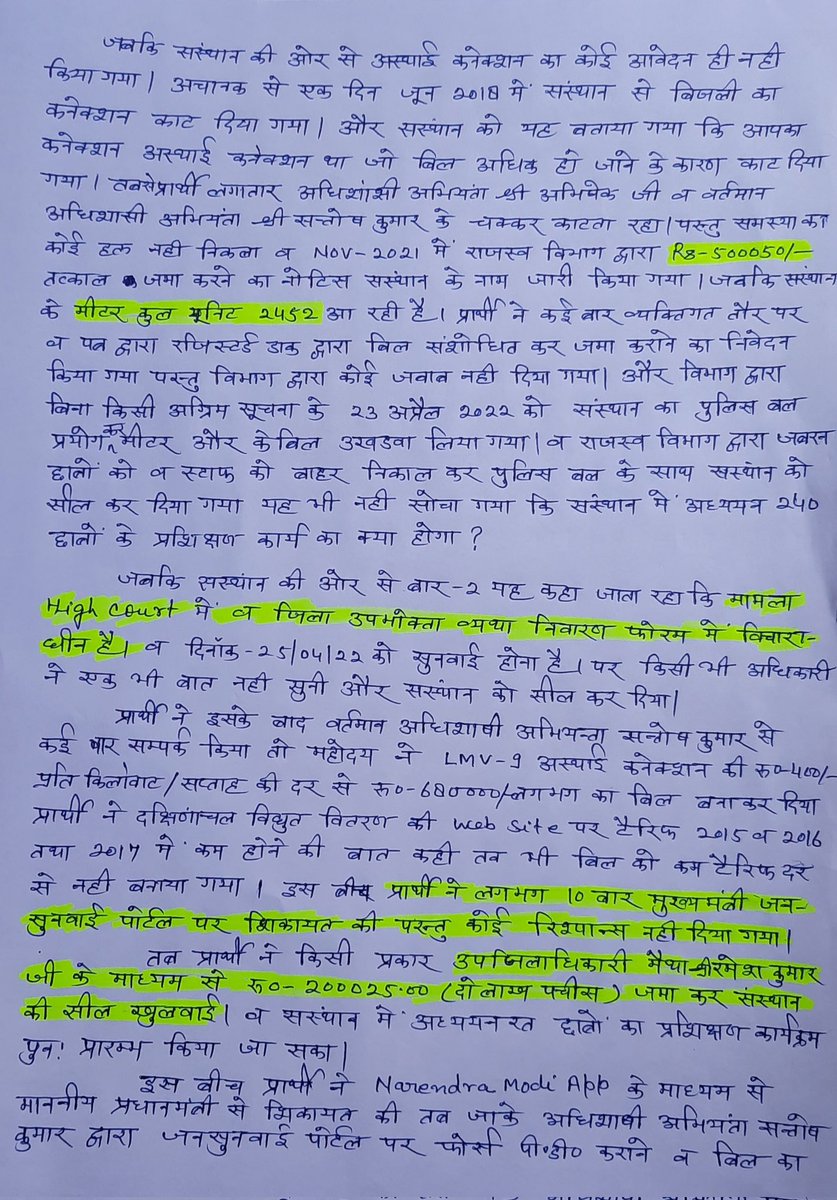 जबकि संस्थान की ओर से अस्थाई कनेक्शन का कोई आवेदन ही नही
किया गया। अचानक से एक दिन जून 2018 में संस्थान से बिजली का
कनेक्शन काट दिया गया। और सस्थान को यह बताया गया कि आपका
कनेक्शन अस्थाई कनेक्शन था जो बिल अधिक हो जाने के कारण काट दिया
गया। तबसे प्रार्थी लगातार अधिशांसी अभियंता श्री अभिषेक जी व वर्तमान
अधिशासी अभियंता श्री सन्तोष कुमार के चक्कर काटता रहा। परन्तु समस्या का
कोई हल नही निकला व NOV-2021 में राजस्व विभाग द्वारा RS-500050/-
तत्काल जमा करने का नोटिस संस्थान के नाम जारी किया गया। जबकि संस्थान
के मीटर कुल यूनिट 2452 आ रही है। प्रार्थी ने कई बार व्यक्तिगत तौर पर
व पत्र द्वारा रजिस्टर्ड डाक द्वारा बिल संशोधित कर जमा कराने का निवेदन
किया गया परन्तु विभाग द्वारा कोई जवाब नही दिया गया। और विभाग द्वारा
बिना किसी अग्रिम सूचना के 23 अप्रैल 2022 को संस्थान का पुलिस बल
प्रयोग कर मीटर और केबिल उखडवा लिया गया। व राजस्व विभाग द्वारा जबरन
छात्रों को व स्टाफ को बाहर निकाल कर पुलिस बल के साथ सस्थान को
सील कर दिया गया यह भी नही सोचा गया कि संस्थान में अध्ययन 240
छात्रों के प्रशिक्षण कार्य का क्या होगा?
जबकि सस्थान की ओर से बार-2 यह कहा जाता रहा कि मामला
High court में व जिला उपभोक्ता व्यथा निवारण फोरम में विचारा-
धीन है। व दिनाँक-25/04/22 को सुनवाई होना है। पर किसी भी अधिकारी
ने एक भी बात नही सुनी और सस्थान को सील कर दिया।
प्रार्थी ने इसके बाद वर्तमान अधिशाषी अभियन्ता सन्तोष कुमार से
कई बार सम्पर्क किया तो महोदय ने LMV-9 अस्थाई कनेक्शन की रू0-400/-
प्रति किलोवाट/सप्ताह की दर से रू0-680000/-लगभग का बिल बनाकर दिया
प्रार्थी ने दक्षिणांचल विद्युत वितरण की Web site पर टैरिफ 2015 व 2016
तथा 2017 में कम होने की बात कही तब भी बिल को कम टैरिफ दर
से नही बनाया गया। इस बीच प्रार्थी ने लगभग 10 बार मुख्यमंत्री जन-
सुनवाई पोर्टल पर शिकायत की परन्तु कोई रिश्पान्स नही दिया गया।
तब प्रार्थी ने किसी प्रकार उपजिलाधिकारी मैथा-श्री रमेश कुमार
जी के माध्यम से रू0-200025.00 (दो लाख पच्चीस) जमा कर संस्थान
की सील खुलवाई। व सस्थान में अध्ययनरत छात्रों का प्रशिक्षण कार्यक्रम
पुनः प्रारम्भ किया जा सका।
इस बीच प्रार्थी ने Narendra Modi App के माध्यम से
माननीय प्रधानमंत्री से शिकायत की तब जाके अधिशाषी अभियंता सन्तोष
कुमार द्वारा जनसुनवाई पोर्टल पर फोर्स पी०डी० कराने व बिल का